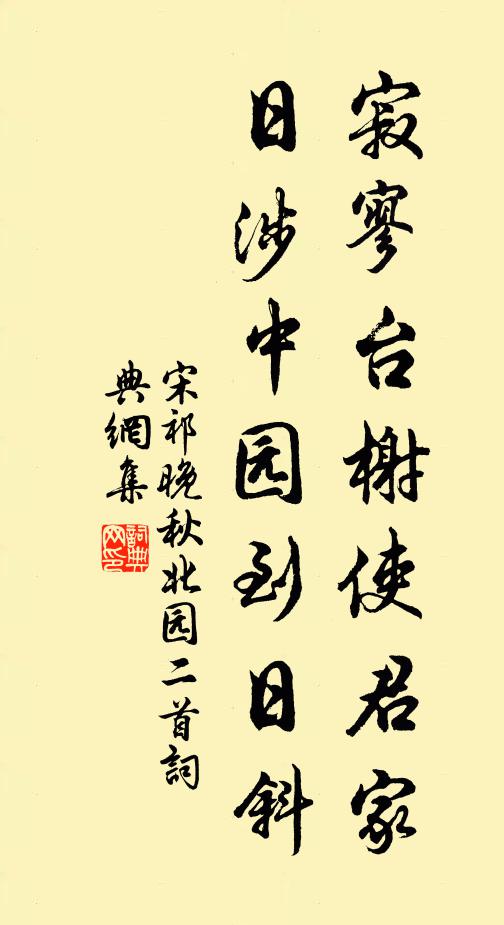 寂寥台榭使君家
日涉中园到日斜
宋祁晚秋北园二首詞
典網集
詞典网印